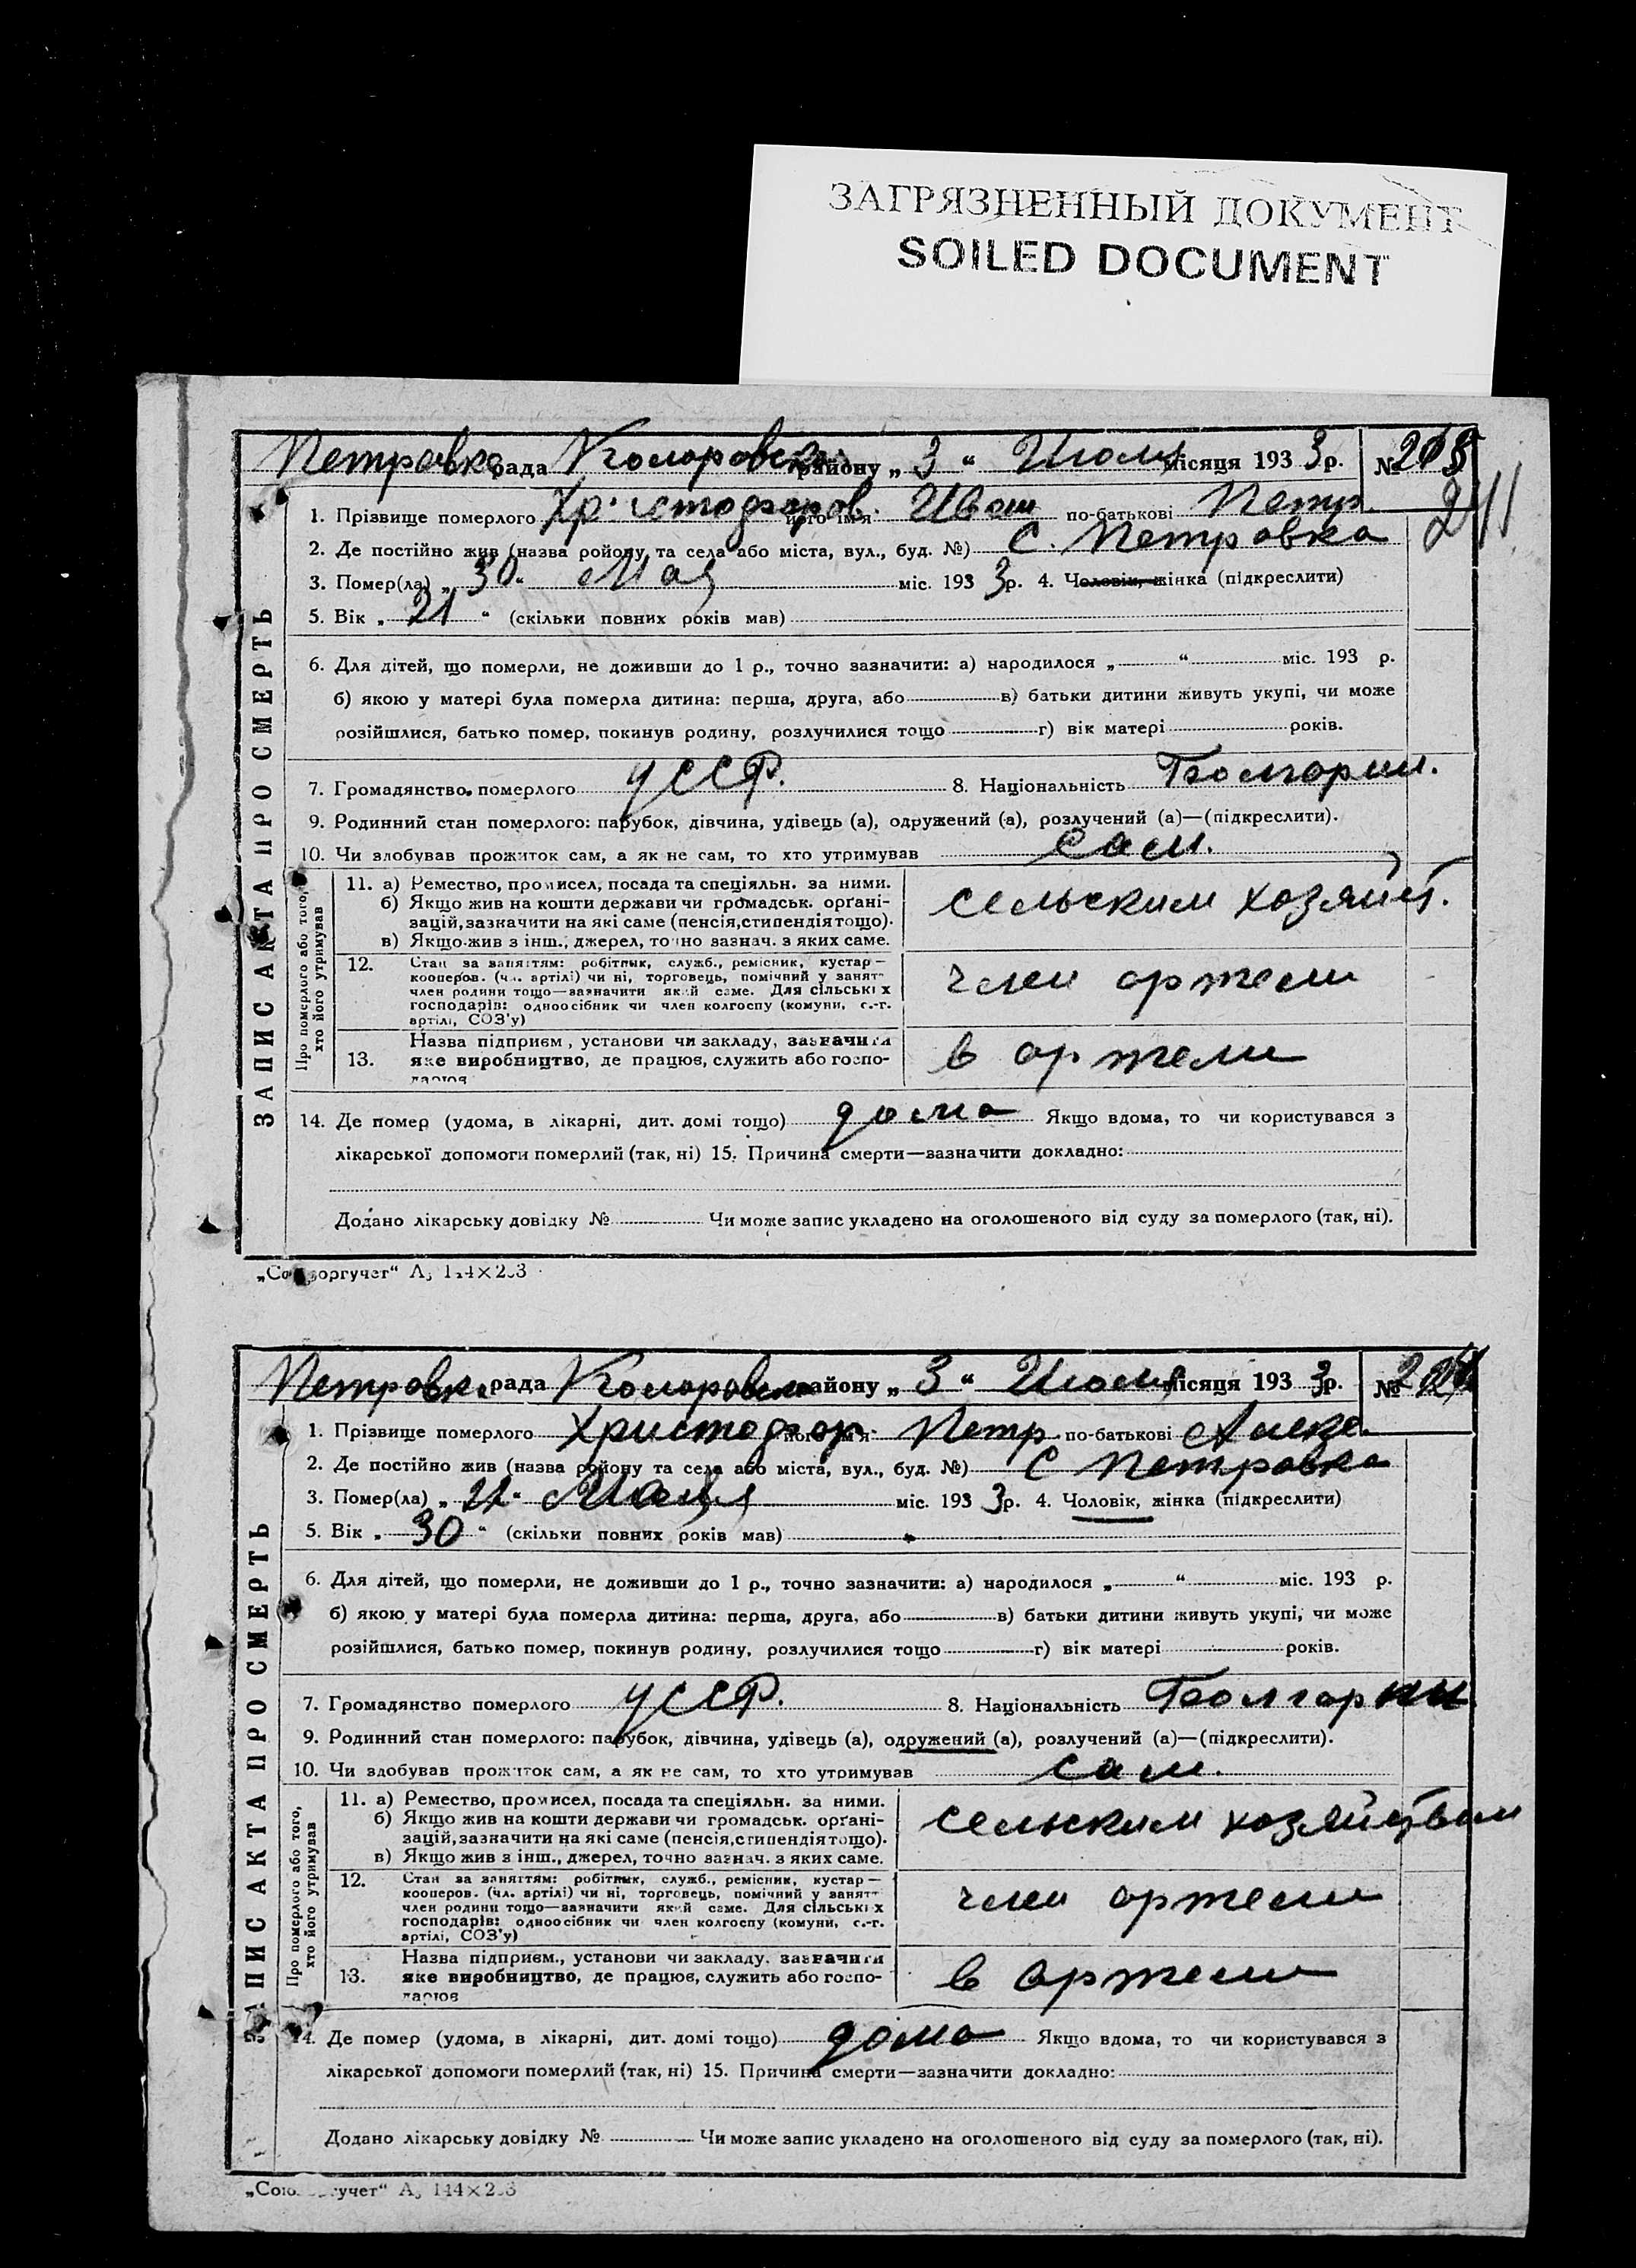 ЗАГРЯЗНЕННЫЙ ДОКУМЕНТ
SOILED DOCUMENT
Петровка рада Коларовск району „ 3 “ Июля місяця 193 3 р. №
1. Прізвище померлого Христофоров його ім'я Иван по-батькові Петр.
2. Де постійно жив (назва ройону та села або міста, вул., буд. №) С. Петровка
3. Помер(ла) „ 30 “ Мая міс. 193 3 р. 4. Чоловік, жінка (підкреслити)
5. Вік „ 21 “ (скільки повних років мав)
6. Для дітей, що померли, не доживши до 1 р., точно зазначити: а) народилося „ “ міс. 193 р.
б) якою у матері була померла дитина: перша, друга, або в) батьки дитини живуть укупі, чи може
розійшлися, батько помер, покинув родину, розлучилися тощо г) вік матері років.
7. Громадянство померлого УССР. 8. Національність
9. Родинний стан померлого: парубок, дівчина, удівець (а), одружений (а), розлучений (а)—(підкреслити).
10. Чи здобував прожиток сам, а як не сам, то хто утримував сам.
ЗАПИС АКТА ПРО СМЕРТЬ
Про померлого або того, хто його утримував
11. а) Ремество, промисел, посада та спеціяльн. за ними.
б) Якщо жив на кошти держави чи громадськ. орґані-
зацій, зазначити на які саме (пенсія, стипендія тощо).
в) Якщо жив з інш., джерел, точно зазнач. з яких саме.
сельским хозяйст.
12. Стан за заняттям: робітник, служб., ремісник, кустар—
кооперов. (чл. артілі) чи ні, торговець, помічний у занятт
член родини тощо—зазначити який саме. Для сільських
господарів: одноосібник чи член колгоспу (комуни, с.-г.
артілі, СОЗ'у)
член артели
13. Назва підприєм., установи чи закладу, зазначити
яке виробництво, де працює, служить або госпо-
дарює
в артели
14. Де помер (удома, в лікарні, дит. домі тощо) дома Якщо вдома, то чи користувався з
лікарської допомоги померлий (так, ні) 15. Причина смерти—зазначити докладно:
Додано лікарську довідку № Чи може запис укладено на оголошеного від суду за померлого (так, ні).
„Союзоргучет“
Петровка рада Коларовск району „ 3 “ Июля місяця 193 3 р. №
1. Прізвище померлого Христофор. його ім'я Петр по-батькові Алекс.
2. Де постійно жив (назва ройону та села або міста, вул., буд. №) С Петровка
3. Помер(ла) „ “ Мая міс. 193 3 р. 4. Чоловік, жінка (підкреслити)
5. Вік „ 30 “ (скільки повних років мав)
6. Для дітей, що померли, не доживши до 1 р., точно зазначити: а) народилося „ “ міс. 193 р.
б) якою у матері була померла дитина: перша, друга, або в) батьки дитини живуть укупі, чи може
розійшлися, батько помер, покинув родину, розлучилися тощо г) вік матері років.
7. Громадянство померлого УССР. 8. Національність
9. Родинний стан померлого: парубок, дівчина, удівець (а), одружений (а), розлучений (а)—(підкреслити).
10. Чи здобував прожиток сам, а як не сам, то хто утримував сам.
ЗАПИС АКТА ПРО СМЕРТЬ
Про померлого або того, хто його утримував
11. а) Ремество, промисел, посада та спеціяльн. за ними.
б) Якщо жив на кошти держави чи громадськ. орґані-
зацій, зазначити на які саме (пенсія, стипендія тощо).
в) Якщо жив з інш., джерел, точно зазнач. з яких саме.
сельским хозяйством
12. Стан за заняттям: робітник, служб., ремісник, кустар—
кооперов. (чл. артілі) чи ні, торговець, помічний у занятт
член родини тощо—зазначити який саме. Для сільських
господарів: одноосібник чи член колгоспу (комуни, с.-г.
артілі, СОЗ'у)
член артели
13. Назва підприєм., установи чи закладу, зазначити
яке виробництво, де працює, служить або госпо-
дарює
в артели
14. Де помер (удома, в лікарні, дит. домі тощо) дома Якщо вдома, то чи користувався з
лікарської допомоги померлий (так, ні) 15. Причина смерти—зазначити докладно:
Додано лікарську довідку № Чи може запис укладено на оголошеного від суду за померлого (так, ні).